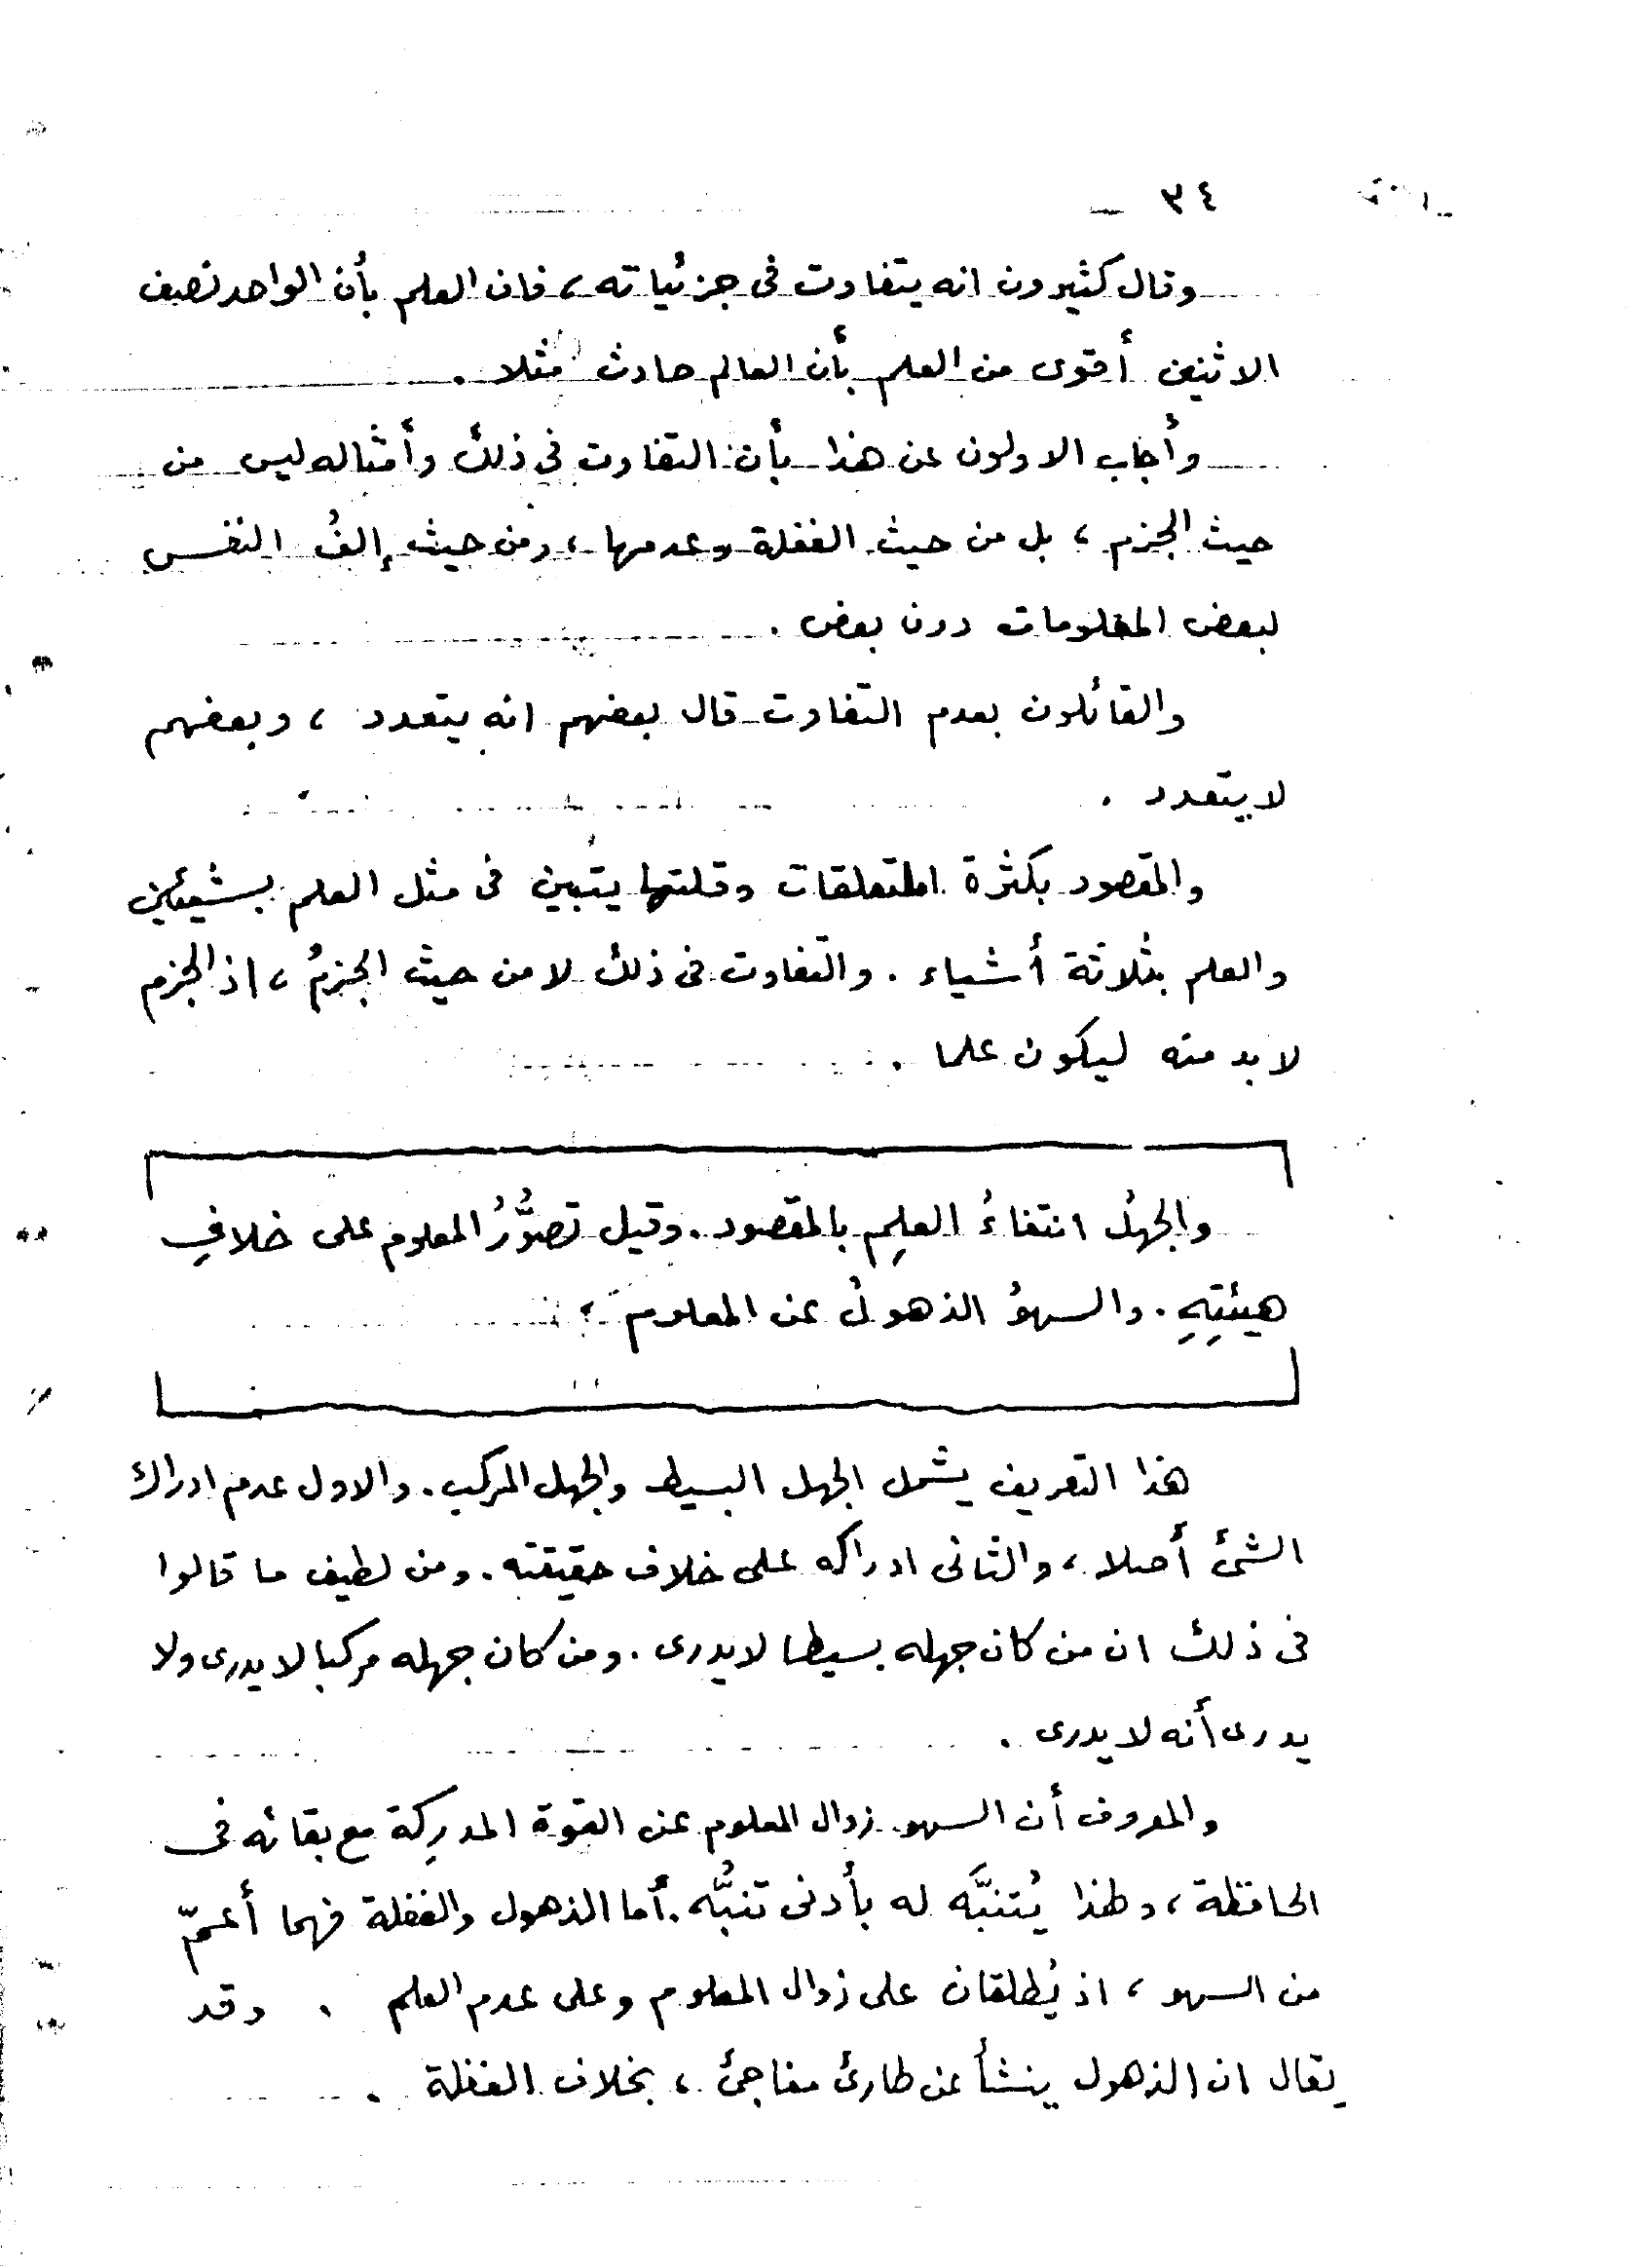 ٣٤ _
وقال كثيرون انه يتفاوت فى جزئياته ، فان العلم بأن الواحد نصف
الاثنين أقوى من العلم بأن العالم حادث مثلا .
وأجاب الاولون عن هذا بأن التفاوت فى ذلك وأمثاله ليس من
حيث الجزم ، بل من حيث الغفلة وعدمها ، ومن حيث إلفُ النفس
لبعض المعلومات دون بعض .
والقائلون بعدم التفاوت قال بعضهم انه يتعدد ، وبعضهم
لا يتعدد .
والمقصود بكثرة المتعلقات وقلتها يتبين فى مثل العلم بشيئين
والعلم بثلاثة أشياء . والتفاوت فى ذلك لا من حيث الجزمُ ، اذ الجزم
لا بد منه ليكون علما .
والجهلُ انتفاءُ العلِم بالمقصود . وقيل تصوُّرُ المعلوم على خلافِ
هيئتِهِ . والسهوُ الذهولُ عن المعلوم .
هذا التعريف يشمل الجهل البسيط والجهل المركب . والاول عدم ادراك
الشئ أصلا ، والثانى ادراكه على خلاف حقيقته . ومن لطيف ما قالوا
فى ذلك ان من كان جهله بسيطا لا يدرى . ومن كان جهله مركبا لا يدرى ولا
يدرى أنه لا يدرى .
والمعروف أن السهو زوال المعلوم عن القوة المدرِكة مع بقائه فى
الحافظة ، ولهذا يُتنبَّه له بأدنى تنبُّه . أما الذهول والغفلة فهما أعمّ
من السهو ، اذ يُطلقان على زوال المعلوم وعلى عدم العلم . وقد
يقال ان الذهول ينشأ عن طارئ مفاجئ ، بخلاف الغفلة .